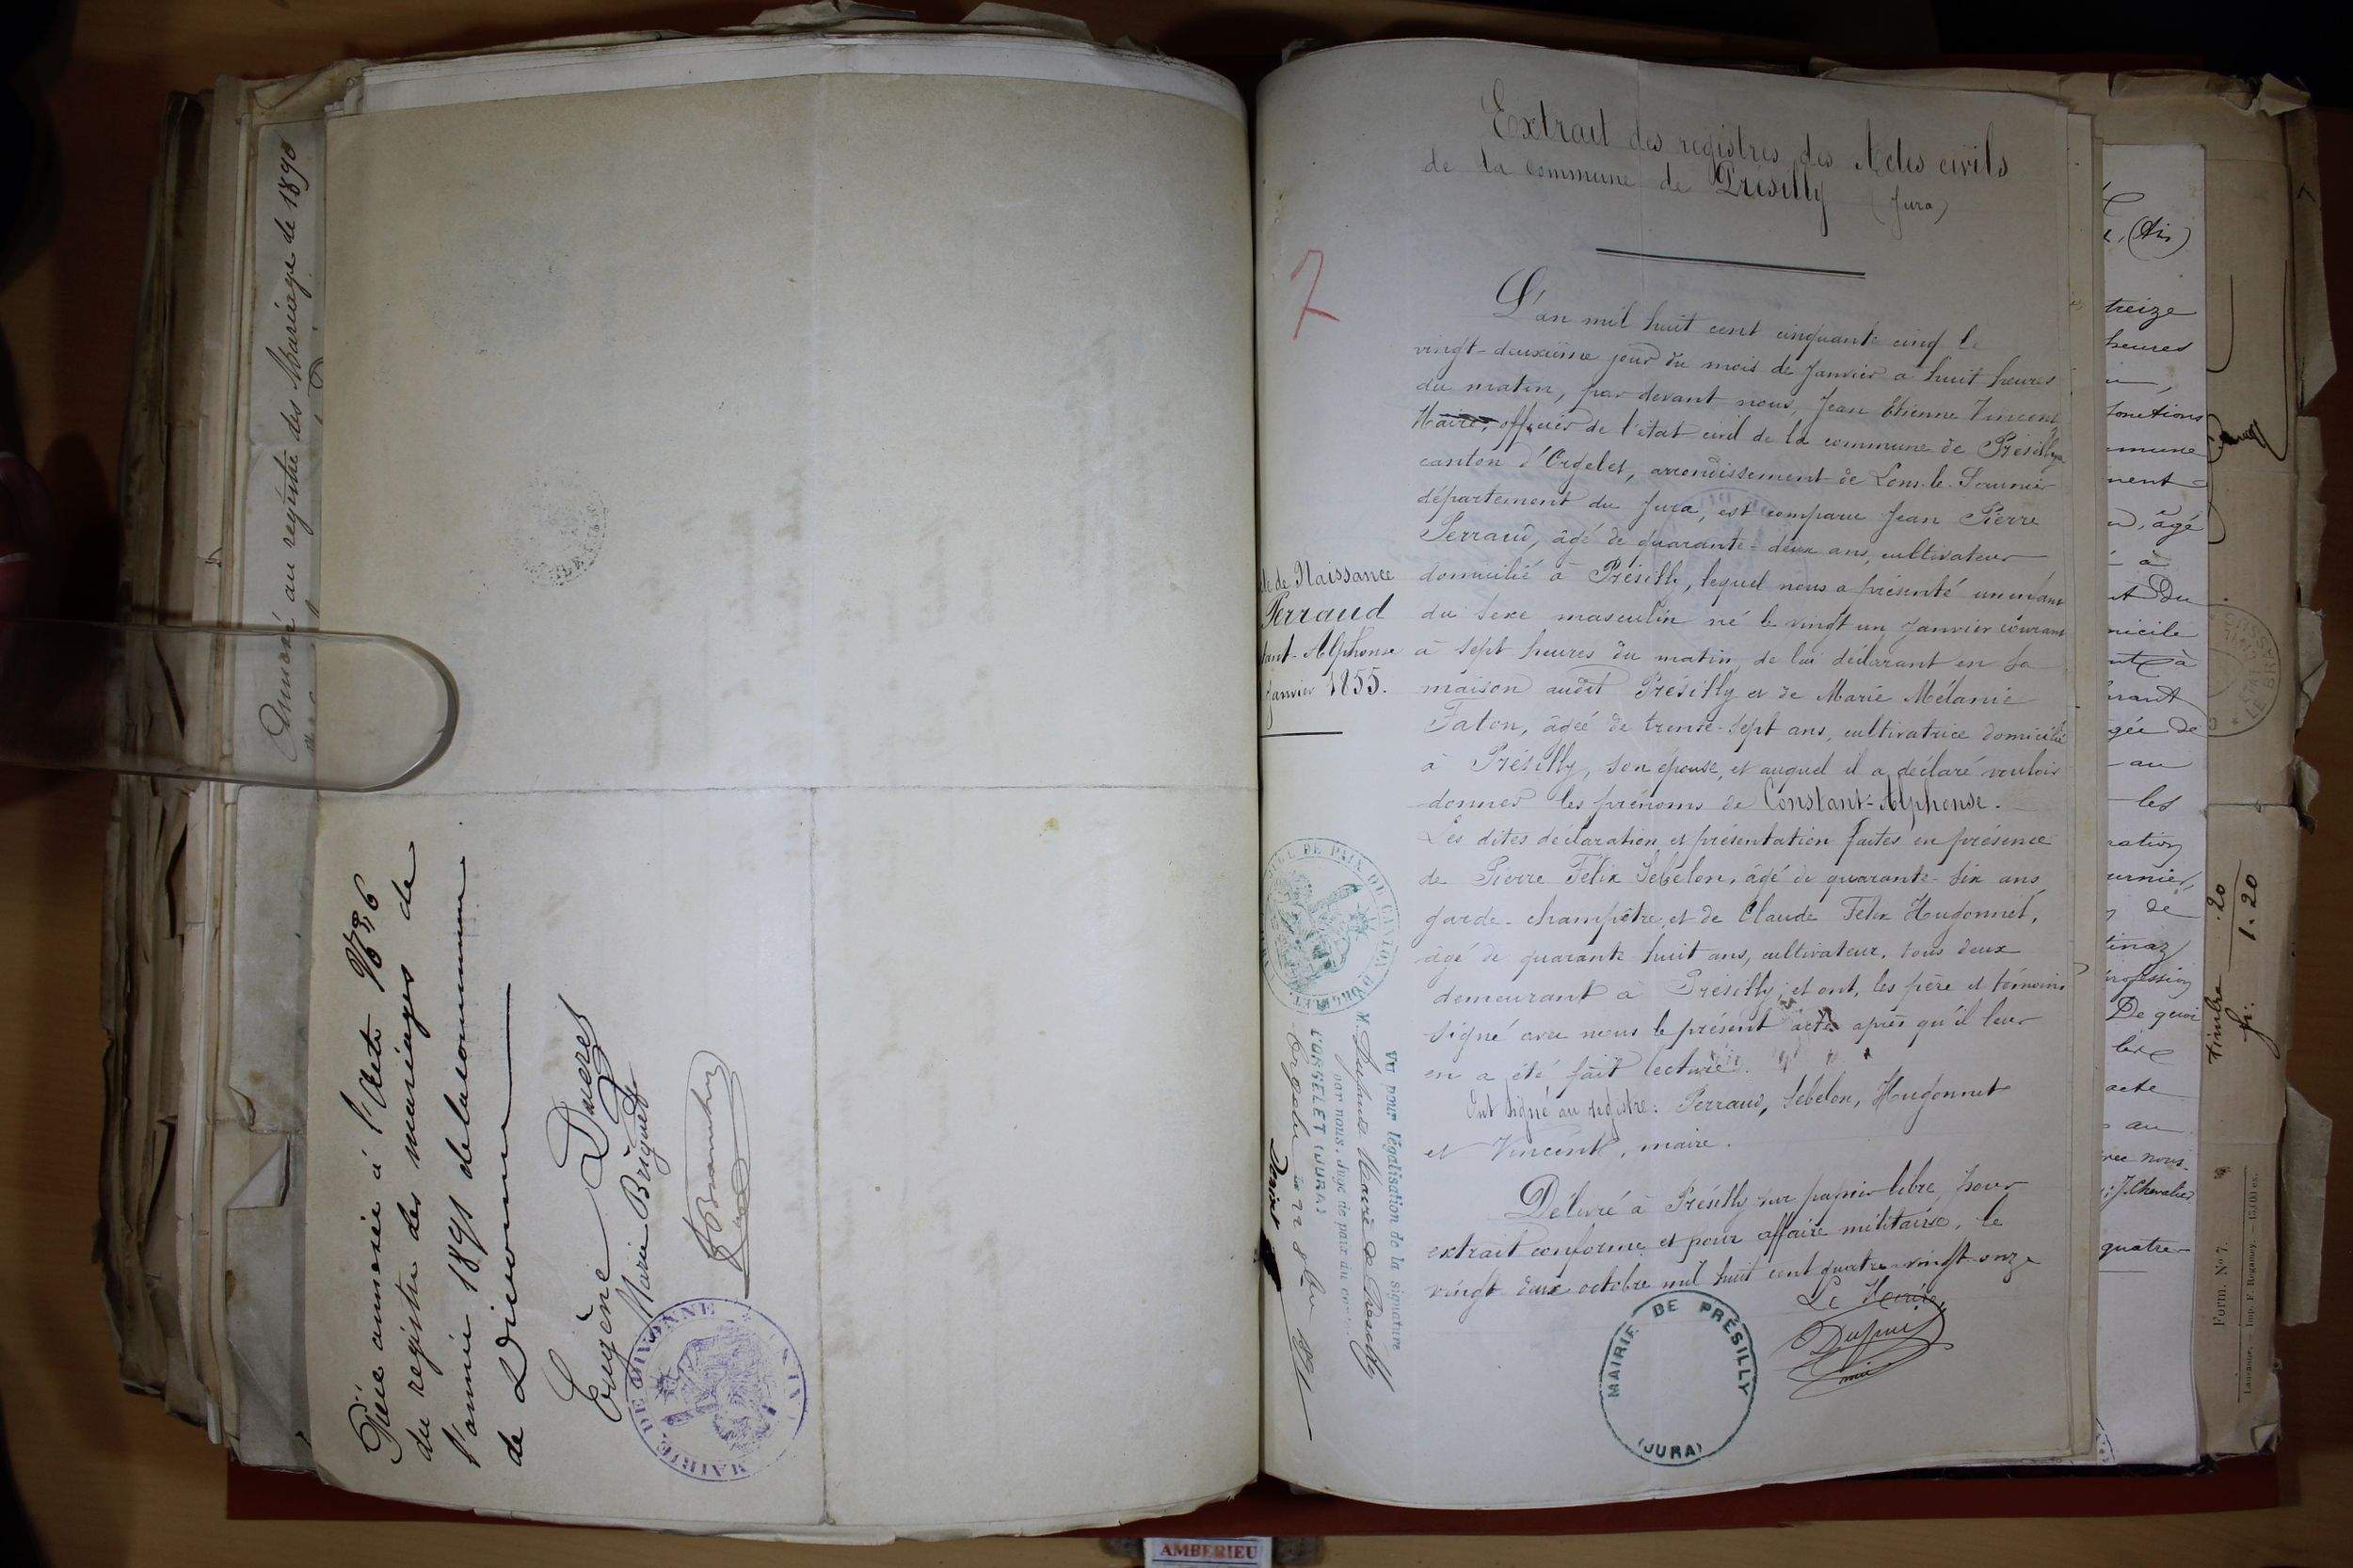 Annexé au registre des Mariages de 1890
Pièce annexée à l'Acte No 6
du registre des mariages de
l'année 1891 de la commune
de Divonne
Eugène Ducret
Marie Briguet
MAIRIE DE DIVONNE (AIN)
Extrait des registres des Actes civils
de la commune de Présilly (Jura)
7
L'an mil huit cent cinquante cinq le
vingt-deuxième jour du mois de Janvier à huit heures
du matin, par devant nous, Jean Etienne Vincent
Maire, officier de l'état civil de la commune de Présilly
canton d'Orgelet, arrondissement de Lons-le-Saunier
département du Jura, est comparu Jean Pierre
Perraud, âgé de quarante-deux ans, cultivateur
domicilié à Présilly, lequel nous a présenté un enfant
du sexe masculin né le vingt un Janvier courant
à sept heures du matin, de lui déclarant en sa
maison audit Présilly et de Marie Mélanie
Faton, âgée de trente-sept ans, cultivatrice domiciliée
à Présilly, son épouse, et auquel il a déclaré vouloir
donner les prénoms de Constant-Alphonse.
Les dites déclaration et présentation faites en présence
de Pierre Félix Sebélon, âgé de quarante-six ans
garde-champêtre, et de Claude Félix Hugonnet,
âgé de quarante-huit ans, cultivateur, tous deux
demeurant à Présilly; et ont, les père et témoins
signé avec nous le présent acte après qu'il leur
en a été fait lecture.
Ont signé au registre: Perraud, Sebelon, Hugonnet
et Vincent, maire.
Délivré à Présilly sur papier libre, pour
extrait conforme et pour affaire militaire, le
vingt deux octobre mil huit cent quatre-vingt-onze
Le Maire
MAIRIE DE PRÉSILLY
(JURA)
de Naissance
Perraud
tant-Alphonse
Janvier 1855.
DE PAIX DU CANTON D'ORGELET
Vu pour légalisation de la signature
M. Dupuis Maire de Présilly
par nous, Juge de paix du
D'ORGELET (JURA)
Orgelet le 22 8bre 1891
(Ain)
treize
heures
fonctions
mmune
ment
âgé
à
Du
micile
rant
gée de
au
les
ration
urnier,
de
tinaz
rofession
De quoi
acte
au
vec nous.
J. Chevalier
quatre-
timbre .20
fr. 1.20
Form. No 7.
Lausanne. — Imp. F. Regamey. — 15,000 ex.
AMBERIEU